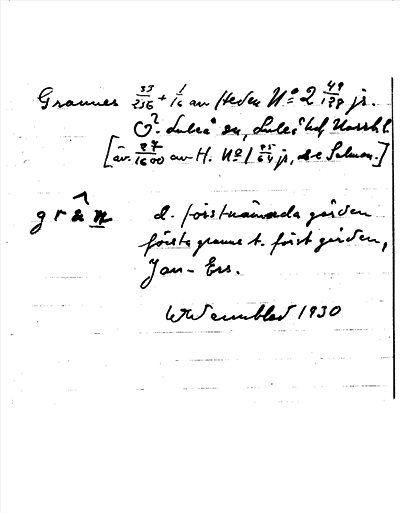 Grannes 33/256 + 1/16 av Heden Nº 2 49/128 jr.
Ö. Luleå sn, Luleå hd, Norrb. l.
[äv. 27/1600 av H. Nº 1 35/64 jr, se Selman.]
g r a n d. förstnämnda gården
första granne t. först gården,
Jan-Ers.
W Wennblad 1930